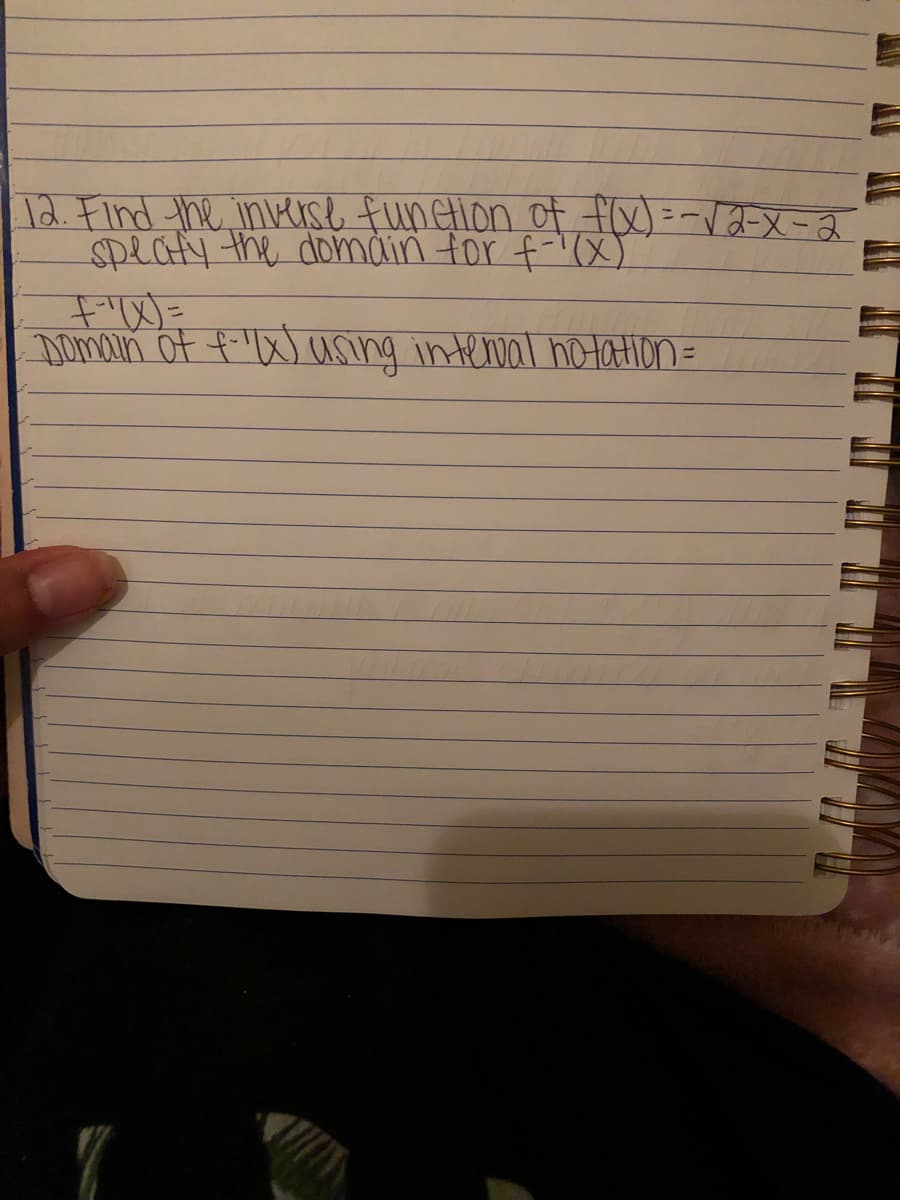 12. Find the inverse function of f(x)=-√2-x-2
specify the domain for f-¹(x)
f-¹(x)=
Domain of f-¹(x) using interval notation=